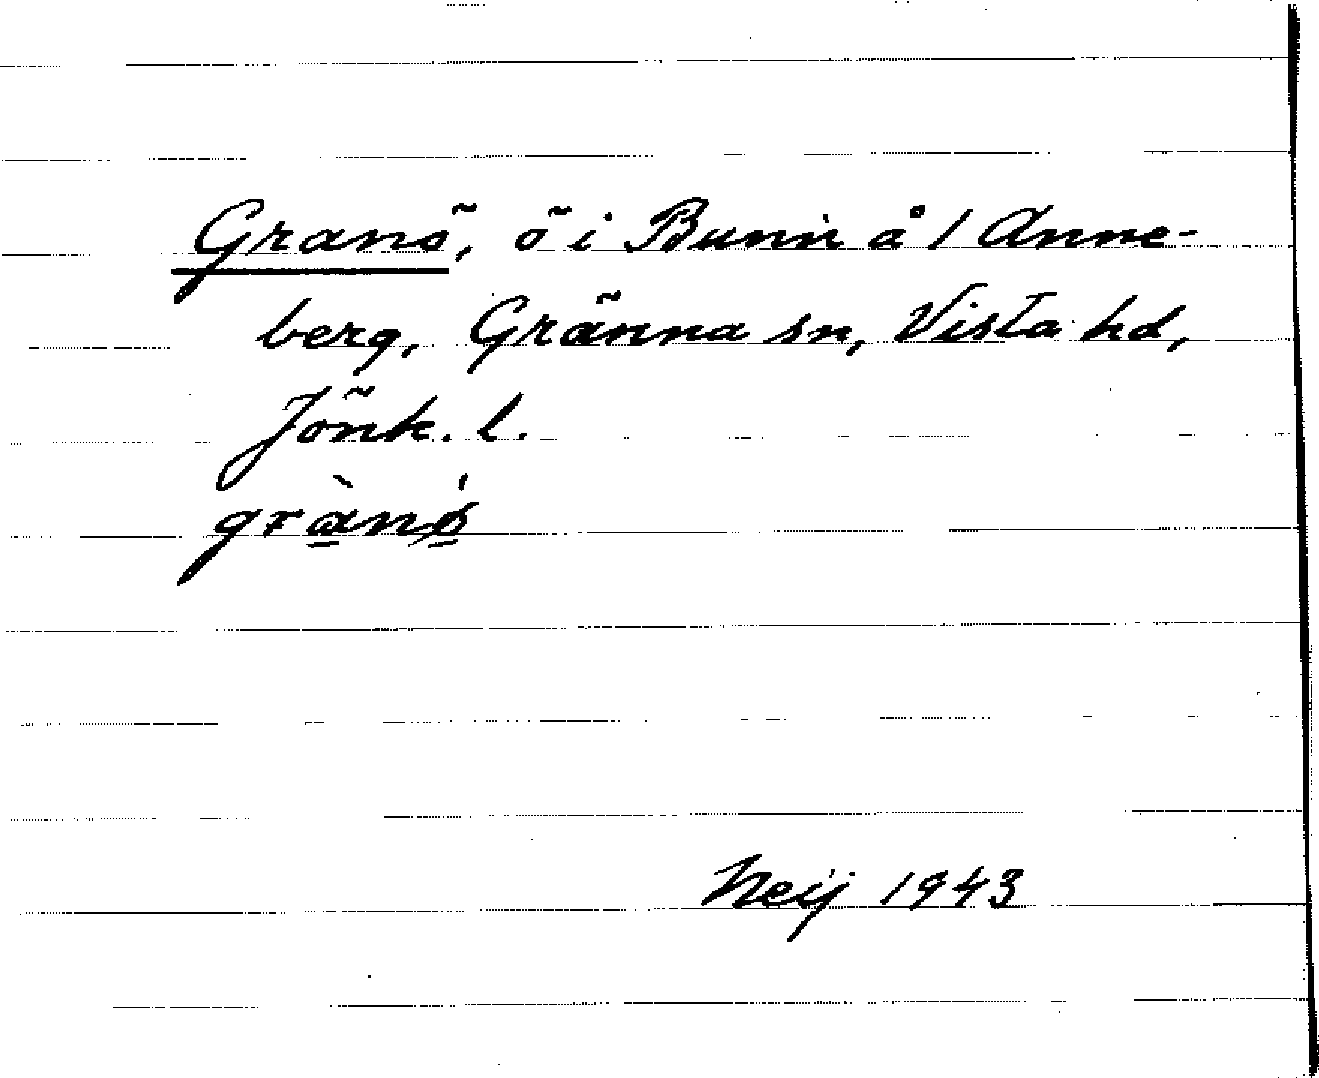 Granö, ö i Bunn å / Anne-
berg, Gränna sn, Vista hd,
Jönk. l.
grànø̀
Neij 1943